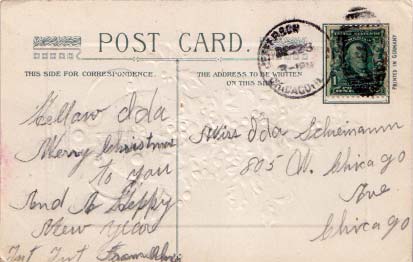 POST CARD.
THIS SIDE FOR CORRESPONDENCE.
THE ADDRESS TO BE WRITTEN
ON THIS SIDE
PRINTED IN GERMANY
CHICAGO
Hellow Ida
Merry Christmas
to you
And A Heppy
New year
From
Miss Ida Scheinamm
805 N. Chicago
Ave
Chicago